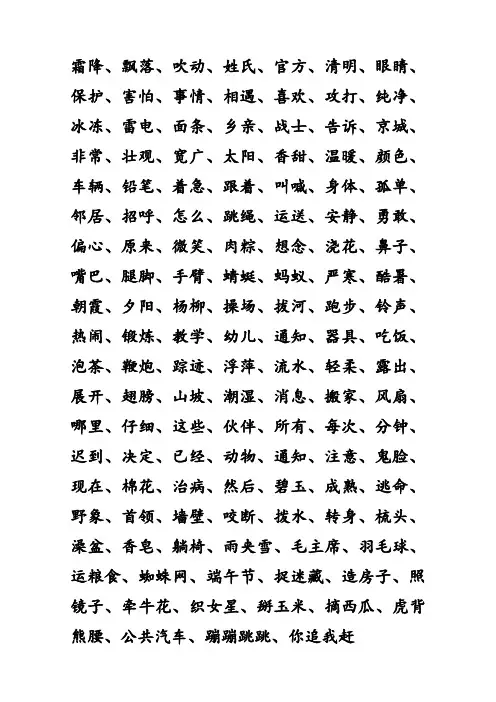 霜降、飘落、吹动、姓氏、官方、清明、眼睛、
保护、害怕、事情、相遇、喜欢、攻打、纯净、
冰冻、雷电、面条、乡亲、战士、告诉、京城、
非常、壮观、宽广、太阳、香甜、温暖、颜色、
车辆、铅笔、着急、跟着、叫喊、身体、孤单、
邻居、招呼、怎么、跳绳、运送、安静、勇敢、
偏心、原来、微笑、肉粽、想念、浇花、鼻子、
嘴巴、腿脚、手臂、蜻蜓、蚂蚁、严寒、酷暑、
朝霞、夕阳、杨柳、操场、拔河、跑步、铃声、
热闹、锻炼、教学、幼儿、通知、器具、吃饭、
泡茶、鞭炮、踪迹、浮萍、流水、轻柔、露出、
展开、翅膀、山坡、潮湿、消息、搬家、风扇、
哪里、仔细、这些、伙伴、所有、每次、分钟、
迟到、决定、已经、动物、通知、注意、鬼脸、
现在、棉花、治病、然后、碧玉、成熟、逃命、
野象、首领、墙壁、咬断、拨水、转身、梳头、
澡盆、香皂、躺椅、雨夹雪、毛主席、羽毛球、
运粮食、蜘蛛网、端午节、捉迷藏、造房子、照
镜子、牵牛花、织女星、掰玉米、摘西瓜、虎背
熊腰、公共汽车、蹦蹦跳跳、你追我赶